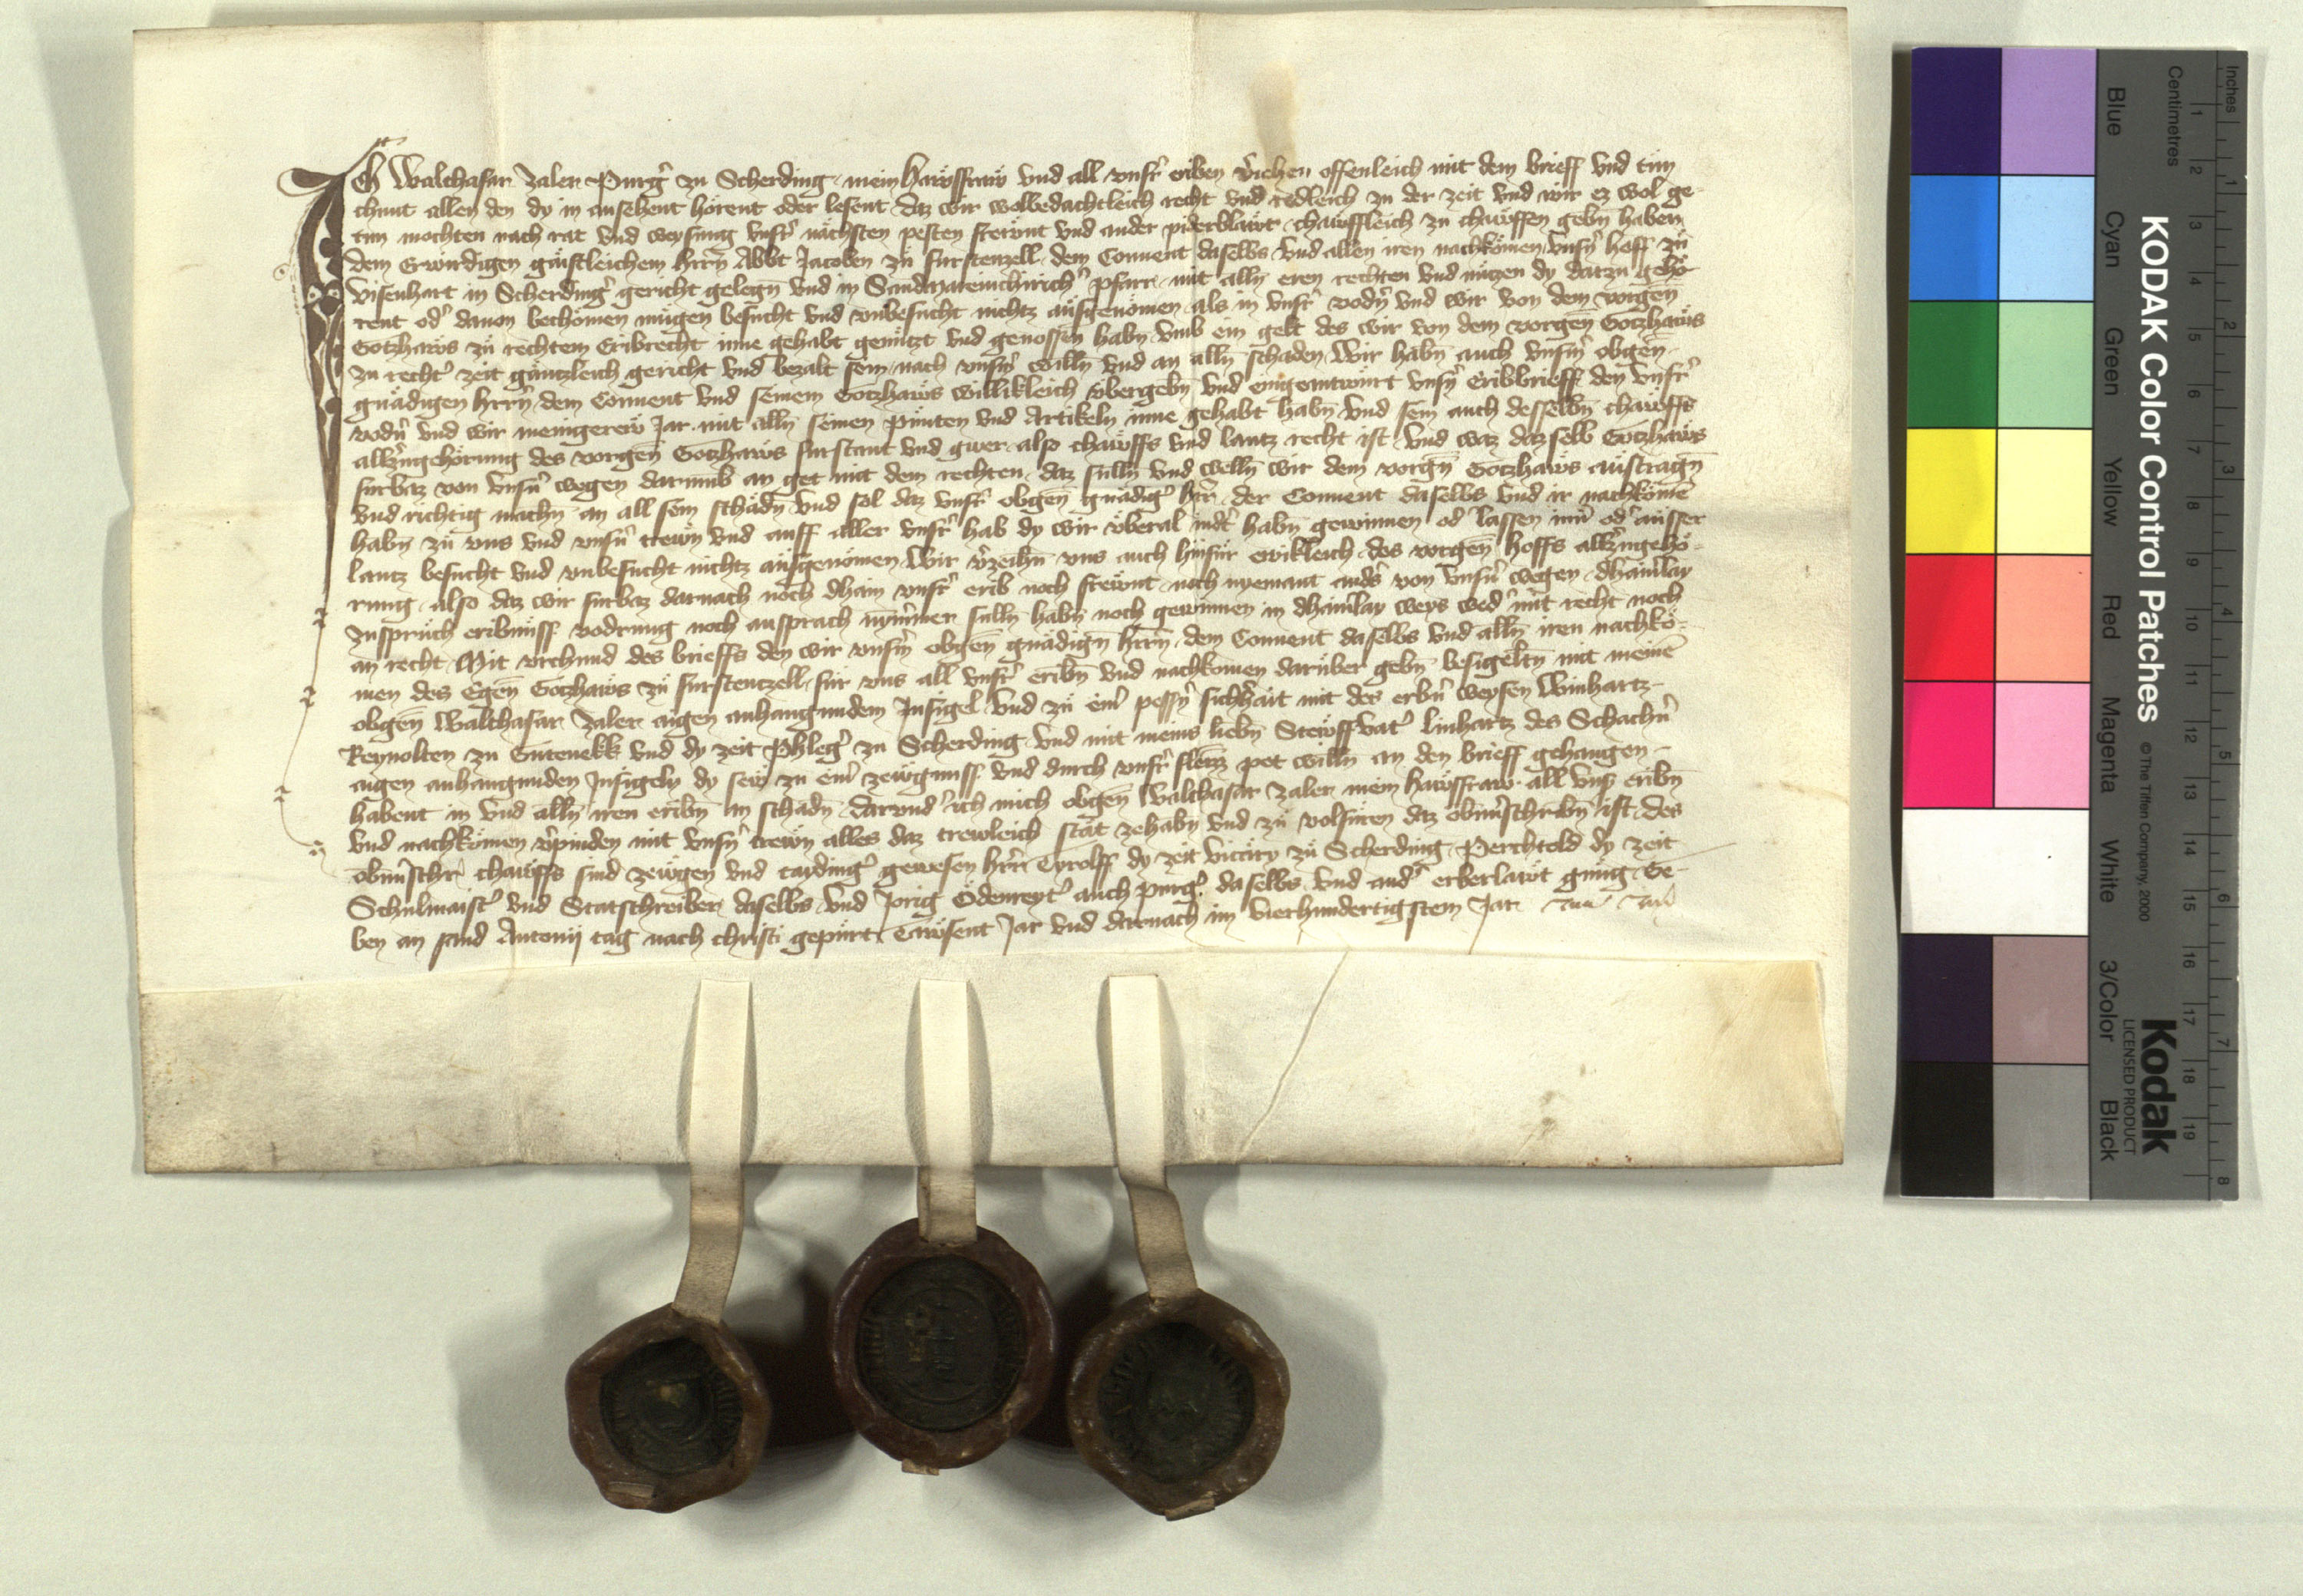 Ich Walthasar Zaler Purg̉ zu Scherding mein hawsfraw vnd all vnsr̉ eriben v̉iehen offenleich mit dem brieff vnd tün
chunt allen den dy in ansehent hörent oder lesent daz wir wolbedachtleich recht vnd redleich zu der zeit vnd wir ez wol ge-
tun mochten nach rat vnd weysung vnsr̉ nächsten pesten frewnt vnd ander piderblawt chawffleich zu chawffen gebn̄ haben
dem Erwirdigen gäistleichem hrr̄n Abbt Jacoben zu furstenzell dem Conuent daselbs vnd allen iren nachkömen vnsn̉ hoff zu
visenhart in Scherdinḡ gericht gelegn̄ vnd in Sandmareinchirich̉ pfarr mit alln̄ eren rechten vnd nützen dy darzu gehö
rent od̉ dauon bechömen mügen besucht vnd vnbesucht nichtz ausgenömen als in vnsr̉ vodn̉ vnd wir von dem vorgen̄
Gotzhaws zu rechtem Eribrecht inne gehabt genützt vnd genossen habn̄ vmb ein gelt des wir von dem vorgen̄ Gotzhaws
zu recht̉ zeit gäntzleich gericht vnd bezalt sein nach vnsm̉ willn̄ vnd an alln̄ schaden Wir habn̄ auch vnsm̉ obgen̄
gnädigen hrr̄n dem Conuent vnd seinem Gotzhaws willikleich vbergebn̄ vnd eingeantwürt vnsn̉ Eribbrieff den vnsr̉
vodn̉ vnd wir menigerew Jar mit alln̄ seinen püntten vnd Artikeln inne gehabt habn̄ vnd sein auch desselbn̄ chawffs
allr̉zugehörung des vorgen̄ Gotzhaws furstant vnd gwer also chawffs vnd lantz recht ist vnd waz daz selb Gotzhaws
furbaz von vnsn̉ wegen darumb an get mit dem rechten daz sulln̄ vnd welln̄ wir dem vorgn̄ Gotzhaws austragn̄
vnd richtig machn̄ an all sein schädn̄ vnd sol daz vnsr̉ obgen̄ gnädig̉ hr̄r der Conuent daselbs vnd ir nachkömē
habn̄ zu vns vnd vnsn̉ trewn̄ vnd auff aller vnsr̉ hab dy wir vberal indt̉ habn̄ gewinnen od̉ lassen inn̉ od̉ ausser
lantz besucht vnd vnbesucht nichtz ausgenömen Wir v̉zeihn̄ vns auch hinfür ewikleich des vorgen̄ hoffs allr̉zugehö-
rung also daz wir furbaz darnach noch dhain vnsr̉ erib noch frewnt noch nyemant and̉s von vnsn̉ wegen dhainlay
Inspruch eribnüss vodrung noch ansprach nym̉mer sulln̄ habn̄ noch gewinnen in dhainlay weys wed̉ mit recht noch
an recht Mit vrchund des brieffs den wir vnsm̉ obgen̄ gnädign̄ hrr̄n dem Conuent daselbs vnd alln̄ iren nachkö-
men des Egen̄ Gotzhaws zu furstentzell fur vns all vnsr̉ eribn̄ vnd nachkömen darüber gebn̄ besigeltn̄ mit meinē
obgen̄ Walthasar Zaler aigen anhangundem Insigel vnd zu eim̉ pessn̉ sichh̉ait mit des erbn̉ weysen Winhartz
Reynolten zu Gutenekk vnd dy zeit Phleg̉ zu Scherding vnd mit meins liebn̄ Stewffvat̉ linhartz des Schachn̉
aigen anhangunden Insigeln dy sew zu eim̉ zewgnuss vnd durch vnsr̉ fleizz pet willn̄ an den brieff gehangen
habent in vnd alln̄ iren eribn̄ an schadn̄ darund̉ ich mich obgen̄ Walthasar Zaler mein hawsfraw all vnsr̉ eribn̄
vnd nachkömen v̉pinden mit vnsn̉ trewn̄ alles daz trewleich stät zehabn̄ vnd zu volfüren daz obnn̉schribn̄ ist des
obnn̉schr̄ chawffs sind zewgen vnd tayding̉ gewesen hrr̄n Cyrolff dy zeit vicäry zu Scherding Perchtold dy zeit
Schulmaist̉ vnd Statschreiber daselbs vnd Jorig Ödenreyt̉ auch purg̉ daselbs vnd and̉ erberlawt gnug Ge-
ben an sand Antonij tag nach christi gepürt Tawsent Jar vnd darnach im vierhundertigstem Jar
KODAK Color Control Patches
© The Tiffen Company, 2000
Kodak
LICENSED PRODUCT
Blue Cyan Green Yellow Red Magenta White 3/Color Black
Inches 1 2 3 4 5 6 7 8
Centimetres 1 2 3 4 5 6 7 8 9 10 11 12 13 14 15 16 17 18 19